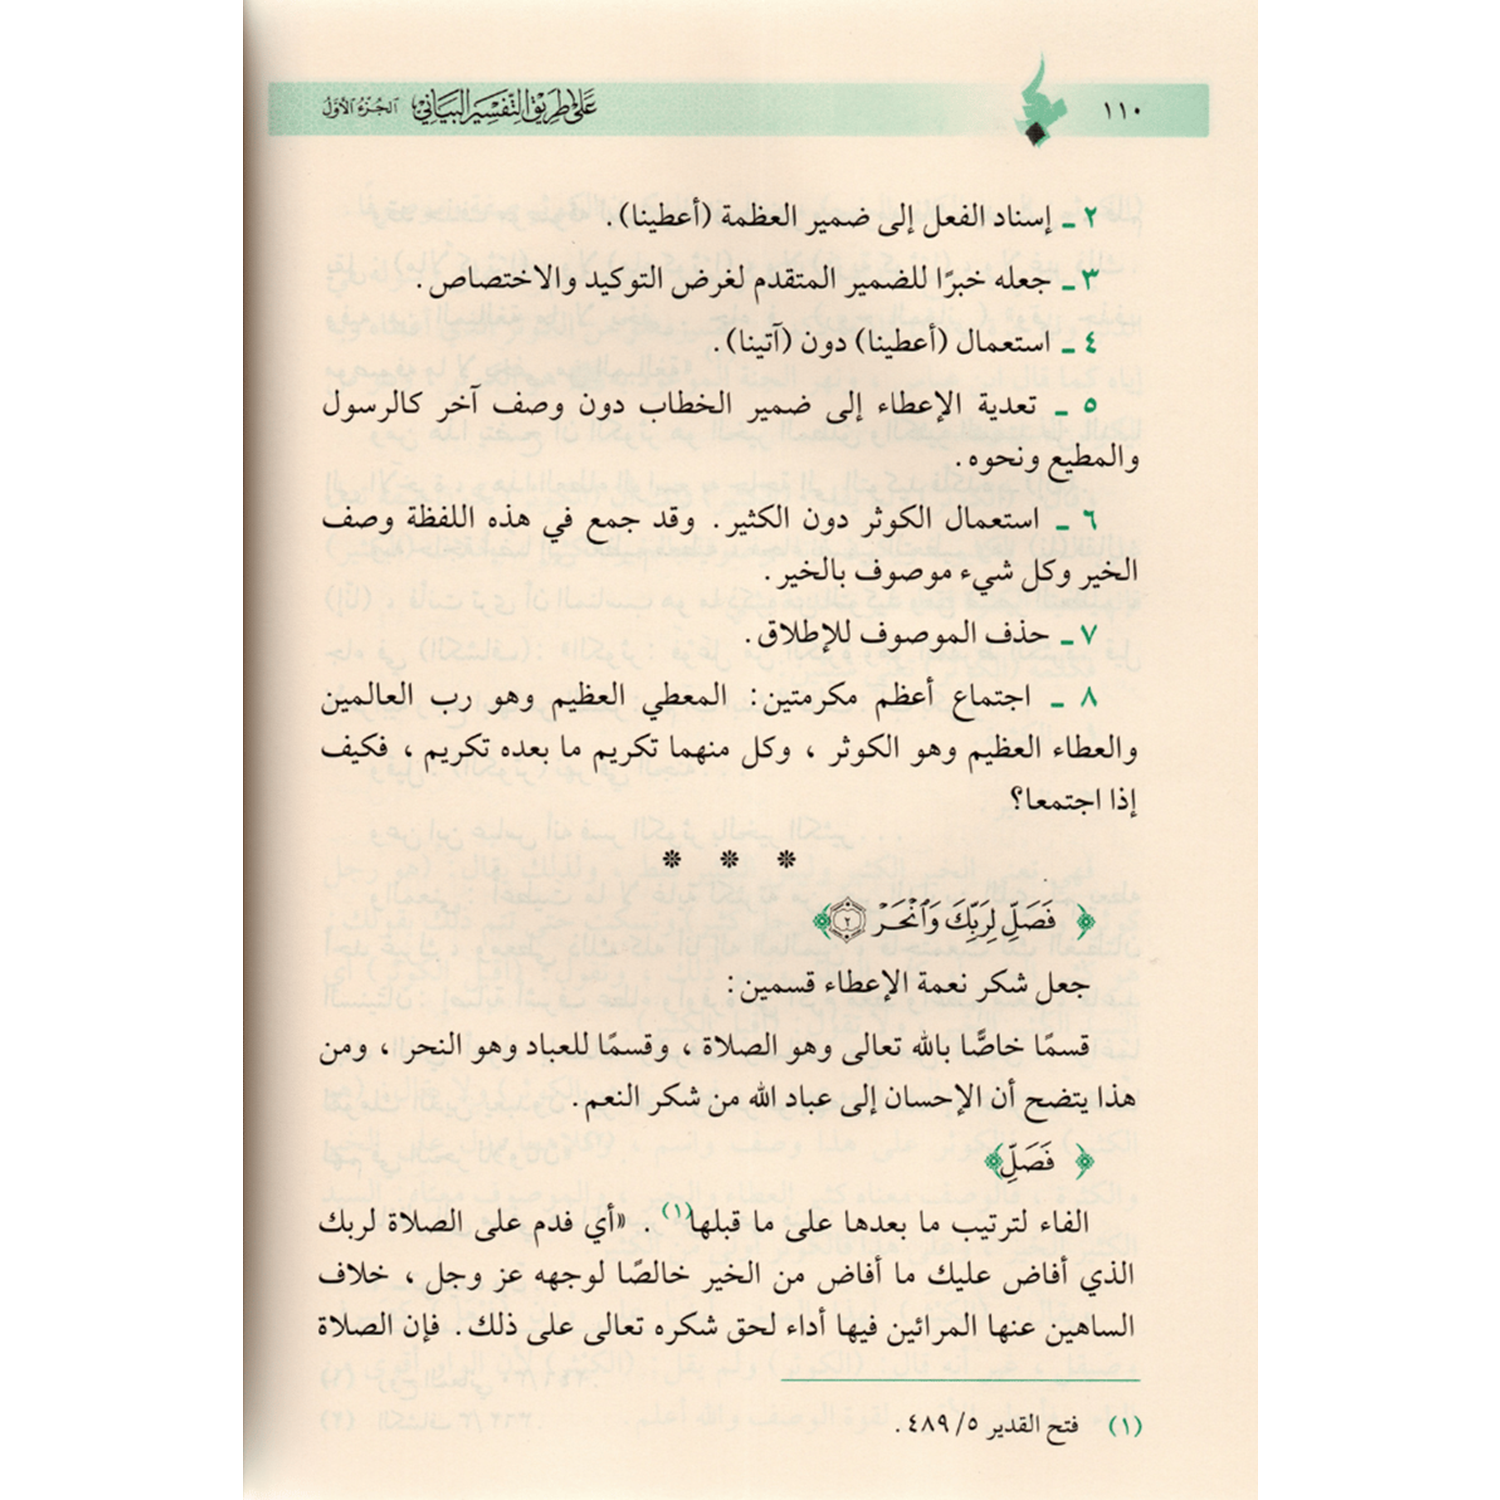 ١١٠ على طريق التفسير البياني الجزء الأول
٢ ـ إسناد الفعل إلى ضمير العظمة (أعطينا).
٣ ـ جعله خبرًا للضمير المتقدم لغرض التوكيد والاختصاص.
٤ ـ استعمال (أعطينا) دون (آتينا).
٥ ـ تعدية الإعطاء إلى ضمير الخطاب دون وصف آخر كالرسول
والمطيع ونحوه.
٦ ـ استعمال الكوثر دون الكثير. وقد جمع في هذه اللفظة وصف
الخير وكل شيء موصوف بالخير.
٧ ـ حذف الموصوف للإطلاق.
٨ ـ اجتماع أعظم مكرمتين: المعطي العظيم وهو رب العالمين
والعطاء العظيم وهو الكوثر ، وكل منهما تكريم ما بعده تكريم ، فكيف
إذا اجتمعا؟
* * *
﴿ فَصَلِّ لِرَبِّكَ وَٱنْحَرْ ٢﴾
جعل شكر نعمة الإعطاء قسمين:
قسمًا خاصًّا بالله تعالى وهو الصلاة ، وقسمًا للعباد وهو النحر ، ومن
هذا يتضح أن الإحسان إلى عباد الله من شكر النعم.
﴿ فَصَلِّ﴾
الفاء لترتيب ما بعدها على ما قبلها(١) . «أي فدم على الصلاة لربك
الذي أفاض عليك ما أفاض من الخير خالصًا لوجهه عز وجل ، خلاف
الساهين عنها المرائين فيها أداء لحق شكره تعالى على ذلك. فإن الصلاة
(١) فتح القدير ٥/ ٤٨٩ .